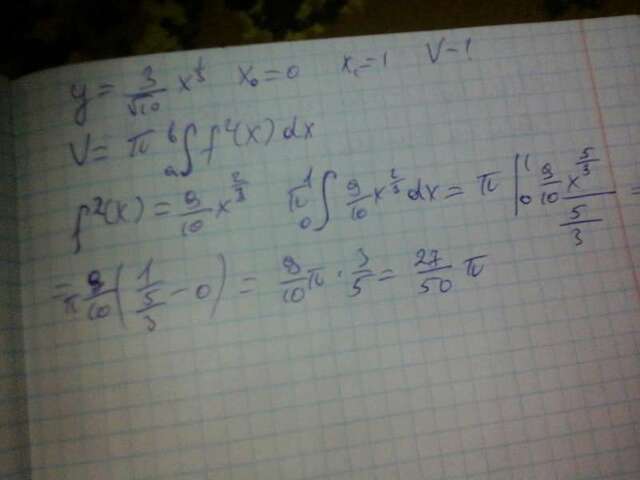 y = 3/√10 x^(1/3) x₀ = 0 x₁ = 1 V - ?
V = π a∫b f²(x) dx
f²(x) = 9/10 x^(2/3) π 0∫1 9/10 x^(2/3) dx = π |0 1 9/10 x^(5/3) / (5/3) =
= π 9/10 (1/(5/3) - 0) = 9/10 π · 3/5 = 27/50 π